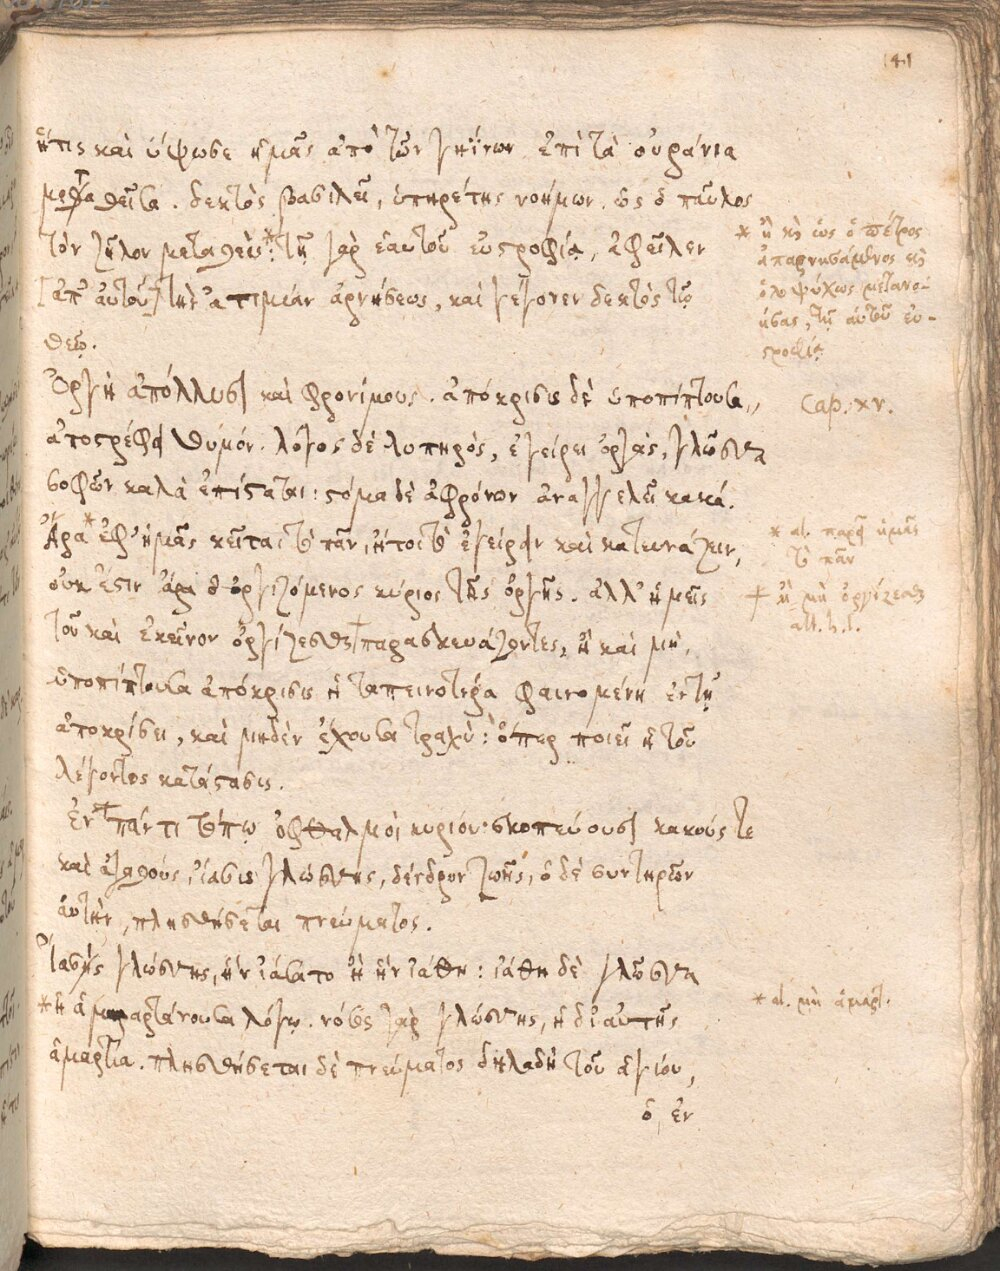 141
ἥτις καὶ ὕψωσε ἡμᾶς ἀπὸ τῶν γηΐνων ἐπὶ τὰ οὐράνια
δεκτὸς βασιλεῖ, ὑπηρέτης νοήμων. ὡς ὁ παῦλος
τὸν ζῆλον μεταθεὶς * τῇ γὰρ ἑαυτοῦ εὐστροφίᾳ, ἀφεῖλεν
[ἀπ' αὐτοῦ] τὴν ἀτιμίαν ἀρνήσεως, καὶ γέγονεν δεκτὸς τῷ
θεῷ.
* ἢ κὴ ὡς ὁ πέτρος
ἀπαρνησάμενος κὴ
ὁλοψύχως μετανο-
ήσας, τῇ αὐτοῦ εὐ-
στροφίᾳ
Ὀργὴ ἀπόλλυσι καὶ φρονίμους. ἀπόκρισις δὲ ὑποπίπτουσα,
Cap. xv.
ἀποστρέφει θυμόν. λόγος δὲ λυπηρός, ἐγείρει ὀργάς, γλῶσσα
σοφῶν καλὰ ἐπίσταται: στόμα δὲ ἀφρόνων ἀναγγελεῖ κακά.
Ἆρα * ἐφ' ἡμᾶς κεῖται τὸ πᾶν, ἤτοι τὸ ἐγείρειν καὶ κατευνάζειν,
* al. παρ' ἡμᾶς
τὸ πᾶν
οὐκ ἔστιν ἄρα ὁ ὀργιζόμενος κύριος τῆς ὀργῆς. ἀλλ' ἡμεῖς
+ ἢ μὴ ὀργίζεσθαι
τοῦ καὶ ἐκεῖνον ὀργίζεσθαι + παρασκευάζοντες, ἢ καὶ μή,
ὑποπίπτουσα ἀπόκρισις ἡ ταπεινοτέρα φαινομένη ἐν τῇ
ἀποκρίσει, καὶ μηδὲν ἔχουσα τραχύ: ὅπερ ποιεῖ ἡ τοῦ
λέγοντος κατάστασις.
Ἐν + πάντι τόπῳ ὀφθαλμοὶ κυρίου: σκοπεύουσι κακούς τε
καὶ ἀγαθούς, ἴασις γλώσσης, δένδρον ζωῆς, ὁ δὲ συντηρῶν
αὐτὴν, πλησθήσεται πνεύματος.
Ἴασις γλώσσης, ἣν ἰάσατο ἢ ἣν ἰάθη: ἰάθη δὲ γλῶσσα
* ἡ ἁμαρτάνουσα λόγῳ. νόσος γὰρ γλώσσης, ἡ δι' αὐτῆς
* al. μὴ ἁμαρτ.
ἁμαρτία. πλησθήσεται δὲ πνεύματος δηλαδὴ τοῦ ἁγίου,
ὁ ἐν